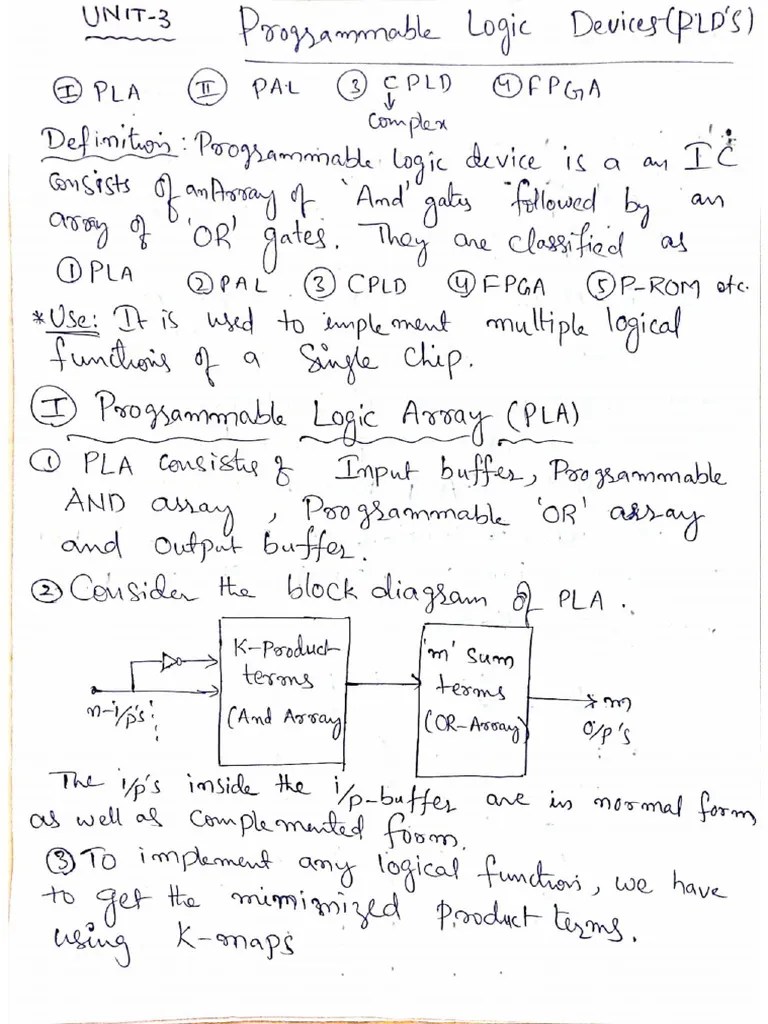 UNIT-3 Programmable Logic Devices-(PLD'S)
Ⓘ PLA Ⓘⓘ PAL ③ CPLD ④ FPGA
↓
Complex
Definition: Programmable logic device is a an IC
consists of an Array of 'And' gates followed by an
array of 'OR' gates. They are classified as
① PLA ② PAL ③ CPLD ④ FPGA ⑤ P-ROM etc.
*Use: It is used to implement multiple logical
functions of a Single Chip.
Ⓘ Programmable Logic Array (PLA)
① PLA consists of Input buffer, Programmable
AND array, Programmable 'OR' array
and Output buffer.
② Consider the block diagram of PLA.
K-Product
terms
(And Array
'm' Sum
terms
(OR-Array)
n-i/p's
m
O/p's
The i/p's inside the i/p-buffer are in normal form
as well as Complemented form.
③ To implement any logical function, we have
to get the mimimized product terms.
using K-maps